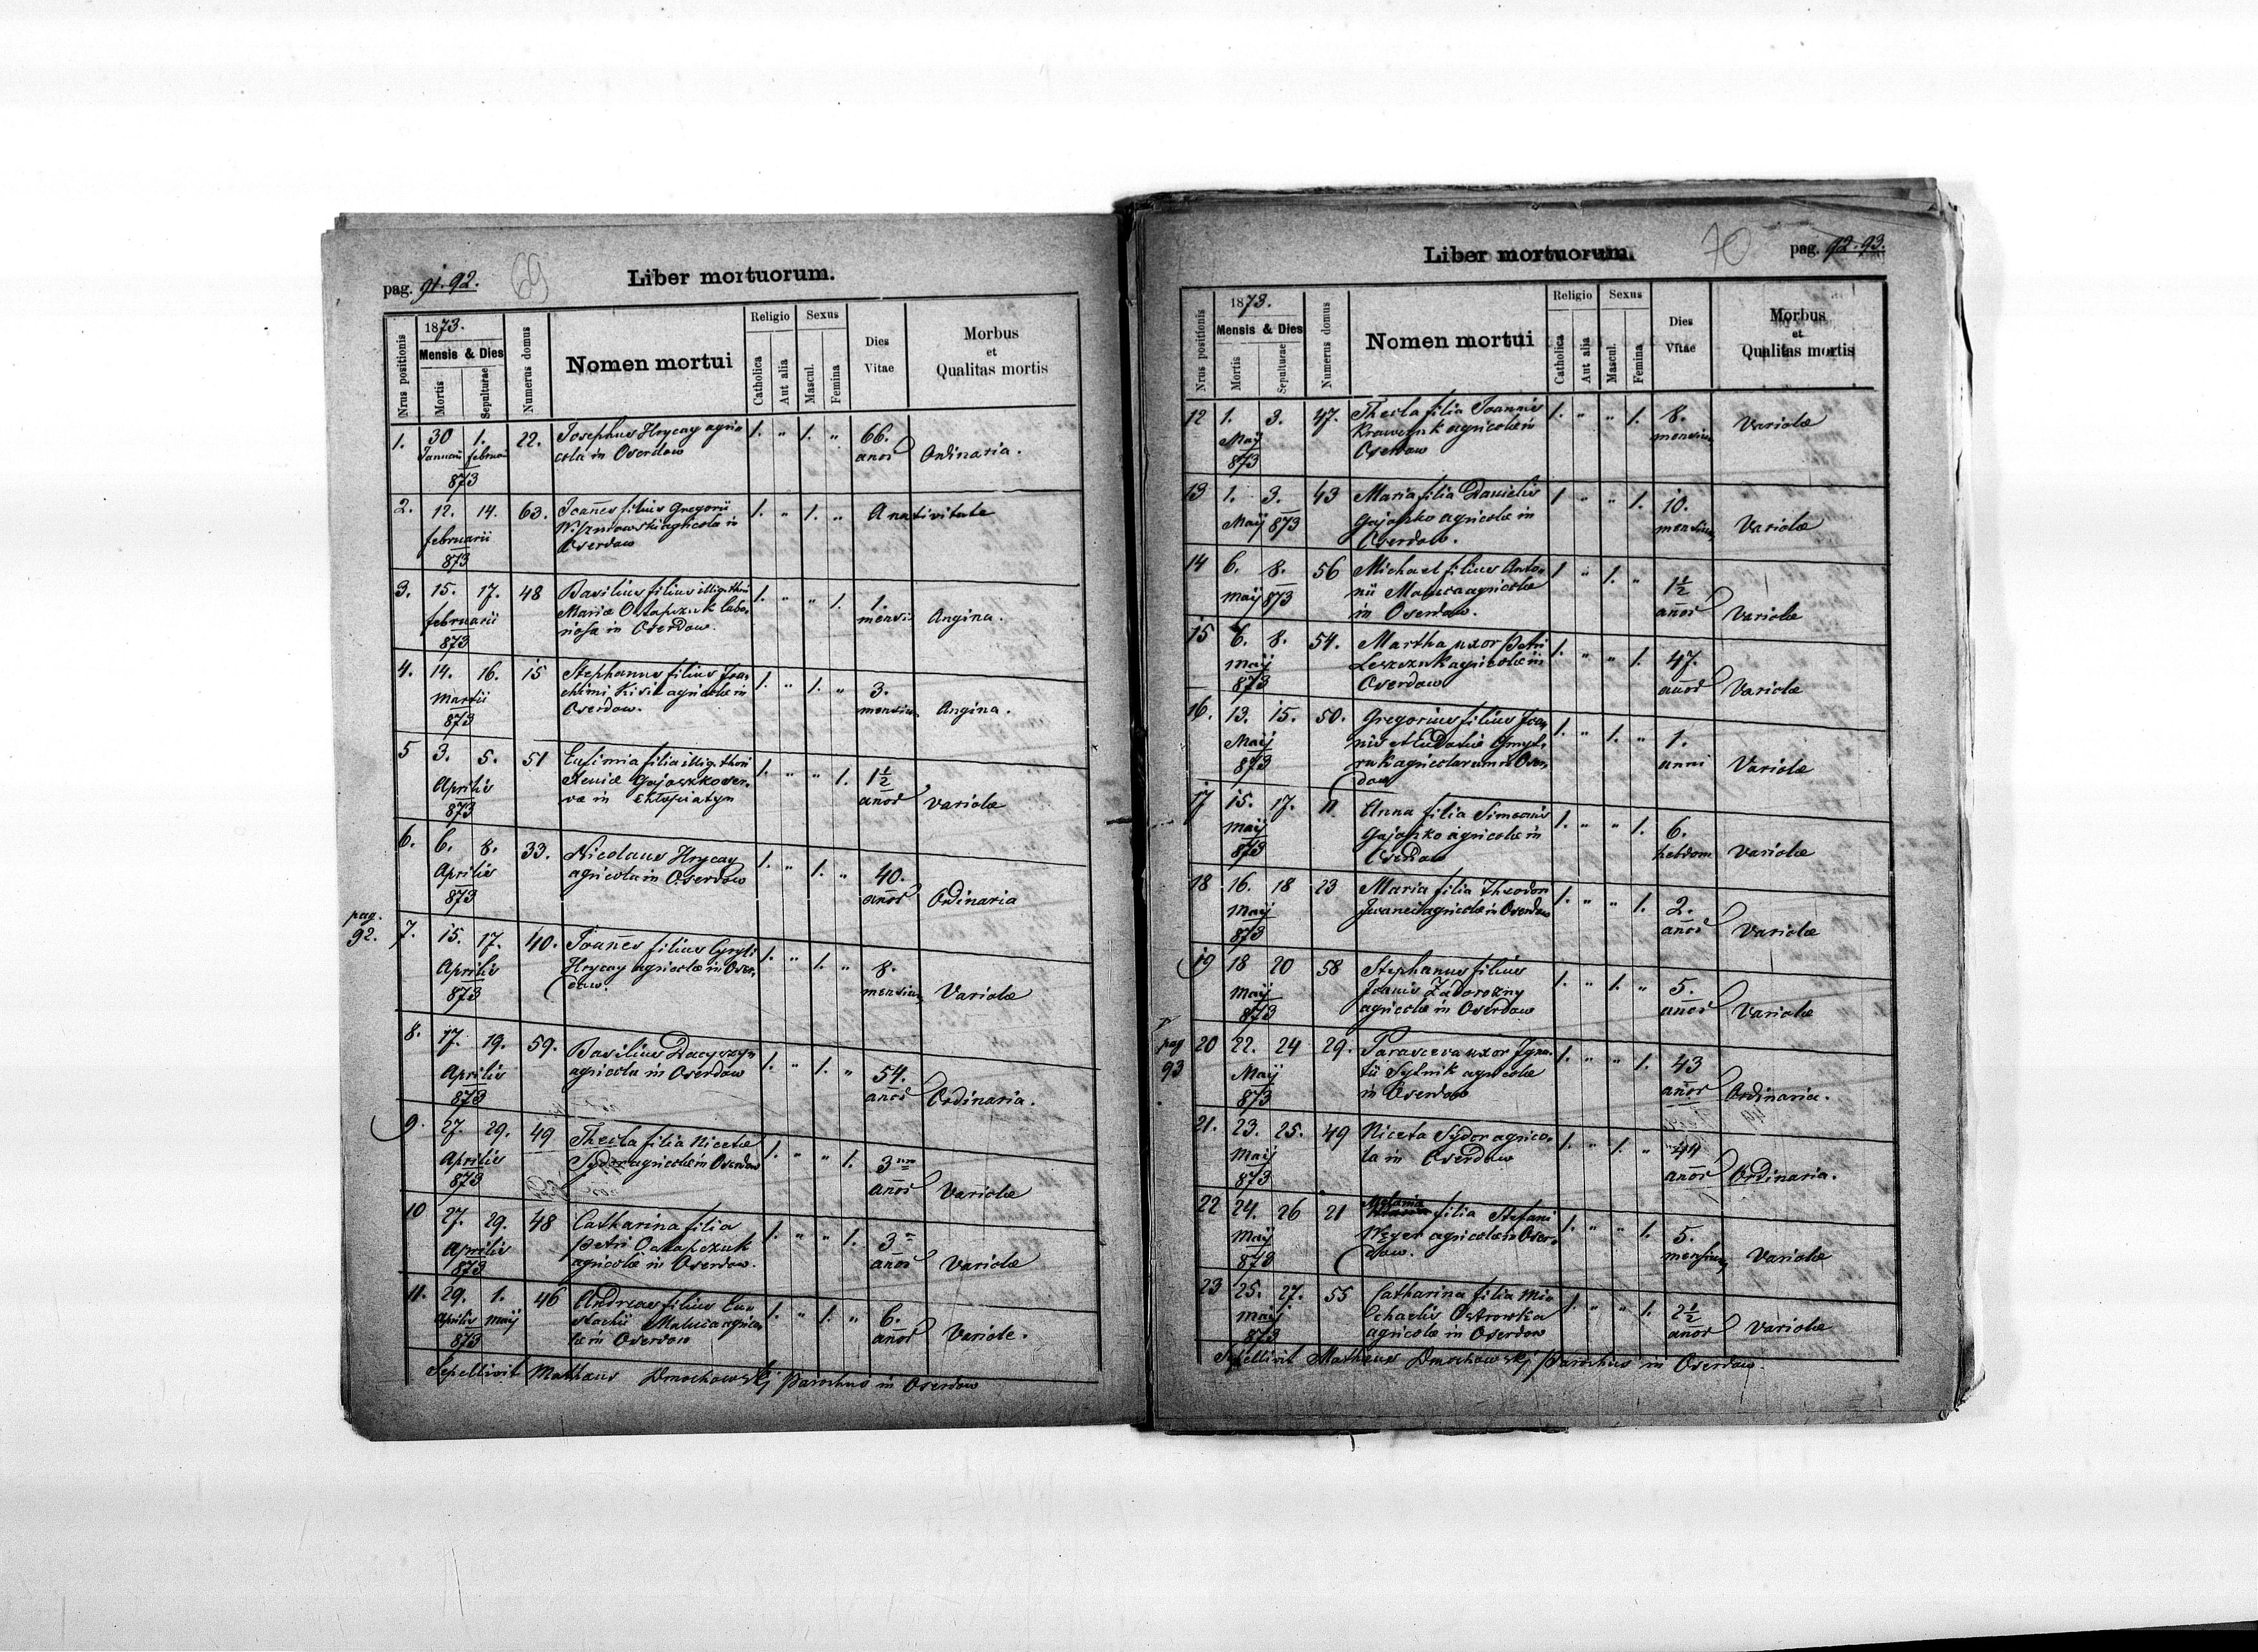 pag. 91. 92.
69
Liber mortuorum.
Nrus positionis
1873.
Mensis & Dies
Mortis
Sepulturae
Numerus domus
Nomen mortui
Religio
Catholica
Aut alia
Sexus
Mascul.
Femina
Dies
Vitae
Morbus
et
Qualitas mortis
1. 30 1. 22. Josephus Hrycay agri= 1. " 1. " 66.
Januarii februarii cola in Oserdow anor Ordinaria.
873
2. 12. 14. 63. Joannes filius Gregorii 1. " 1. " A nativitate
februarii agricolae in
873 Oserdow
3. 15. 17. 48 Basilius filius illig. thori 1. " " 1. 1.
februarii Mariae Ostapczuk labo= mensis Angina.
873 riosa in Oserdow.
4. 14. 16. 15 Stephanus filius Joa= 1. " 1. " 3.
Martii chimi Kisil agricolae in mensium Angina.
873 Oserdow.
5 3. 5. 51 Eufimia filia illig. thori 1. " " 1. 1½
Aprilis Xeniae anor variolae
873 in Chłopiatyn
6. 6. 8. 33. Nicolaus Hrycay 1. " 1. " 40.
Aprilis agricola in Oserdow anor Ordinaria
873
pag.
92.
7. 15. 17. 40. Joannes filius Cyryli 1. " 1. " 8.
Aprilis Hrycay agricolae in Oser= mensium Variolae
873 dow.
8. 17. 19. 59. Basilius Dacyszyn 1. " 1. " 54.
Aprilis agricola in Oserdow anor Ordinaria.
873
9. 27. 29. 49 Thecla filia Nicetae 1. " " 1. 3
Aprilis Sydor agricolae in Oserdow anor Variolae
873
10 27. 29. 48 Catharina filia 1. " " 1. 3
Aprilis Petri Ostapczuk anor Variolae
873 agricolae in Oserdow.
11. 29. 1. 46 Andreas filius Eu= 1. " 1. " 6.
Aprilis Maij stachii Maluca agrico= anor Variole.
873 lae in Oserdow
Sepellivit Mathaus Dmochowskj Parochus in Oserdow
Liber mortuorum.
70
pag. 92. 93.
Nrus positionis
1873.
Mensis & Dies
Mortis
Sepulturae
Numerus domus
Nomen mortui
Religio
Catholica
Aut alia
Sexus
Mascul.
Femina
Dies
Vitae
Morbus
et
Qualitas mortis
12 1. 3. 47. Thecla filia Joannis 1. " " 1. 8.
Maij Krawczuk agricolae in mensium Variolae
873 Oserdow
13 1. 3. 43 Maria filia Danielis 1 " " 1. 10.
Maij 873 Gajaszko agricolae in mensium Variolae
Oserdow.
14 6. 8. 56 Michael filius Anto= 1 " 1. " 1½
Maij 873 nii Maluca agricolae anor Variolae
in Oserdow.
15 6. 8. 54. Martha uxor Petri 1. " " 1. 47.
Maij Leszczuk agricolae in anor Variolae
873 Oserdow
16. 13. 15. 50. Gregorius filius Joan= 1. " 1. " 1.
Maij nis et Eudoxiae anni Variolae
873 agricolarum in Oser=
dow
17 15. 17. 11 Anna filia Simeonis 1. " " 1. 6.
Maij Gajaszko agricolae in hebdom Variolae
873 Oserdow
18 16. 18 23 Maria filia Theodori 1. " " 1. 2.
Maij agricolae in Oserdow anor Variolae
873
19 18 20 58 Stephanus filius 1. " 1. " 5.
Maij Joanis Zadorozny anor Variolae
873 agricolae in Oserdow
pag
93
20 22. 24 29. Parasceva uxor Igna= 1. " " 1. 43
Maij tii Sytnik agricolae anor Ordinaria.
873 in Oserdow
21. 23. 25. 49 Niceta Sydor agrico= 1. " 1. " 44
Maij la in Oserdow anor Ordinaria.
873
22 24. 26 21 Melania filia Stefani 1. " " 1. 5.
Maij Węzer agricolae in Oser= mensium Variolae
873 dow.
23 25. 27. 55 Catharina filia Mi= 1. " " 1. 2½
Maij chaelis Ostrowka anor Variolae
873 agricolae in Oserdow
Sepellivit Mathaus Dmochowskj Parochus in Oserdow.